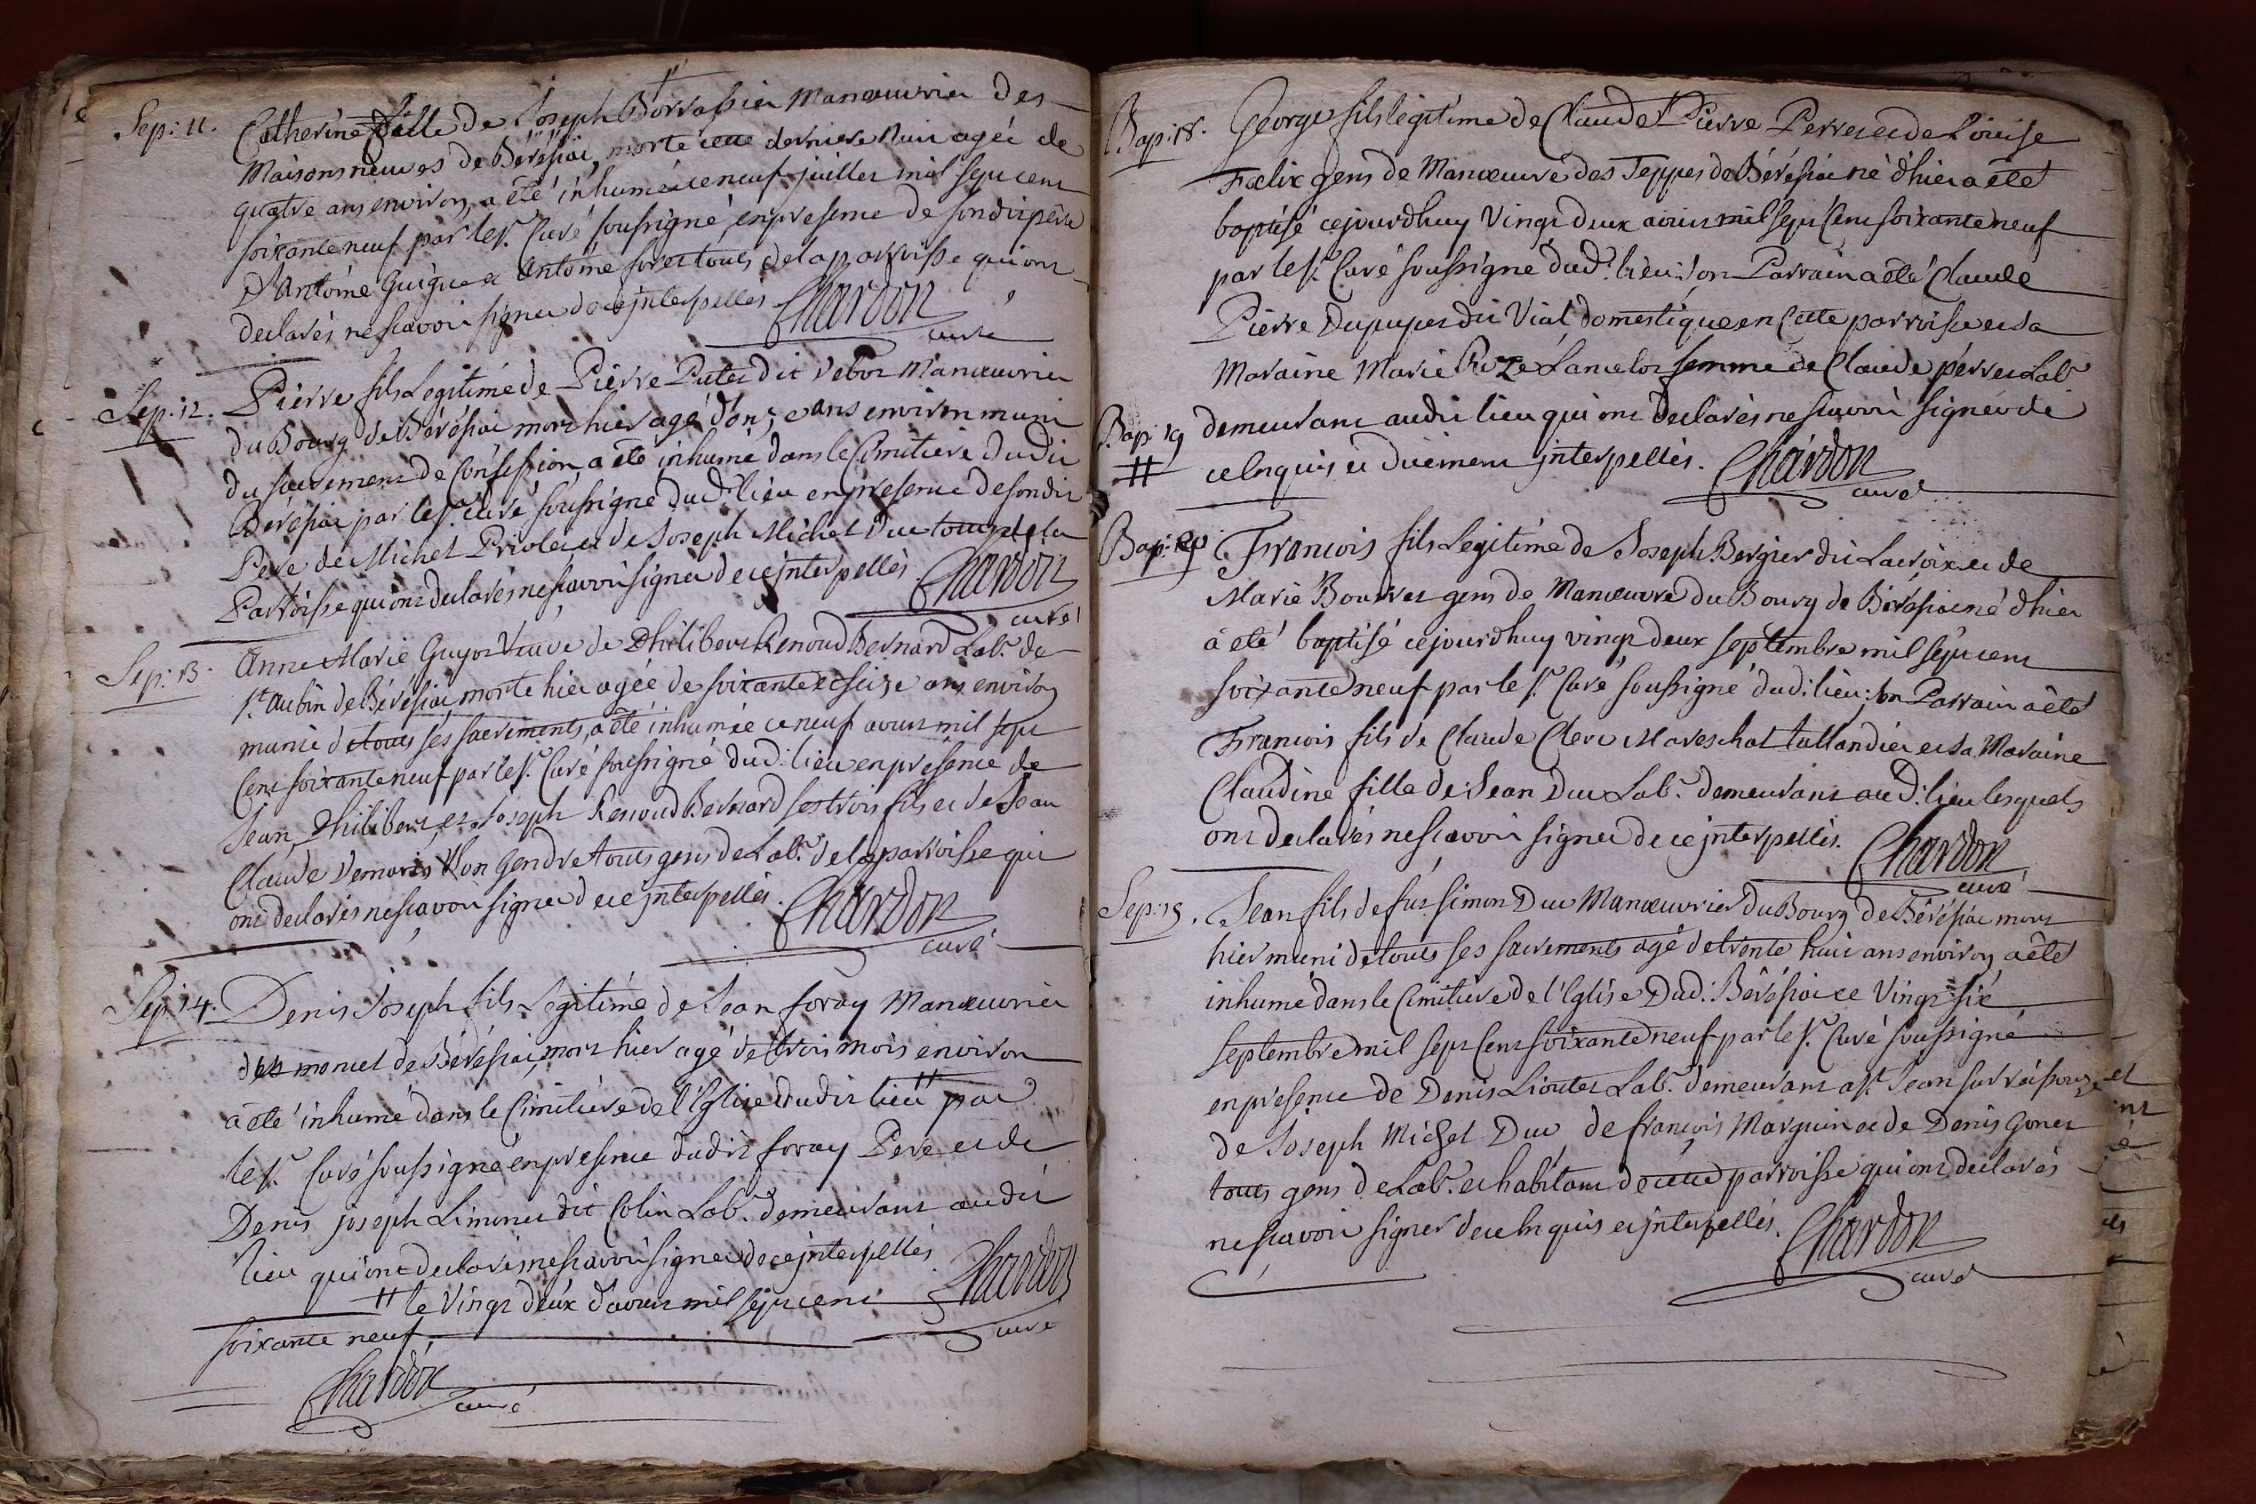 Sep: 11. Catherine fille de Joseph Borrassier Manœuvrier des
Maisonsneuves de Béréfiai morte cette derniere nuit agée de
quatre ans environ, a été inhumée ce neuf juillet mil sept cent
soixanteneuf par le sr. Curé soussigné, en presence de son dit père
d'Antoine Guigue et Antoine foret tous de la parroisse qui ont
declarés ne scavoir signer de ce jnterpellés. Chardon
curé
Sep: 12. Pierre fils Legitime de Pierre Putet dit Vebor Manœuvrier
du Bourg de Béréfiai mort hier agé d'onze ans environ muni
du sacrement de Confession, a été inhumé dans le Cimitiere du dit
Béréfiai par le sr. Curé soussigné dud. lieu en presence de son dit
Pere de Michel Privolet et de Joseph Michel Duc tous de la
Parroisse qui ont declarés ne scavoir signer de ce jnterpellés. Chardon
curé
Sep: 13. Anne Marie Guyot Veuve de Philibert Renoud Bernard Labr. de
st. Aubin de Béréfiai, morte hier agée de soixante et seize ans environ
munie de tous ses sacrements, a été inhumée ce neuf aoust mil sept
Cent soixante neuf par le sr. Curé soussigné dud. lieu en présence de
Jean, Philibert, et Joseph Renoud Bernard ses trois fils et de Jean
Claude son Gendre tous gens de Labr. de la parroisse qui
ont declarés ne scavoir signer de ce jnterpellés. Chardon
curé
Sep: 14. Denis Joseph fils Legitime de Jean foray Manœuvrier
de Béréfiai, mort hier agé de trois mois environ
a été inhumé dans le Cimitiere de l'Eglise dudit lieu # par
le sr. Curé soussigné en presence dudit foray Pere et de
Denis joseph Limonet dit Colin Labr. demeurant audit
lieu qui ont declarés ne scavoir signer de ce jnterpellés. Chardon
# le Vingt deux d'aoust mil sept cent
curé
soixante neuf.
Chardon
curé
Bap: 18. George fils legitime de Claude Pierre Perret et de Louise
Fœlix gens de Manœuvre des Teppes de Béréfiai né d'hier a été
baptisé cejourdhuy Vingt deux aoust mil sept Cent soixante neuf
par le sr. Curé soussigné dud. lieu: son Parrain a été Claude
Pierre Dupuper dit Vial domestique en Cette parroisse et sa
Maraine Marie Roze Lancelot femme de Claude perret Labr.
Bap: 19 demeurant audit lieu qui ont declarés ne scavoir signer de
# ce Enquis et duëment jnterpellés. Chardon
curé
Bap: 20 Francois fils Legitime de Joseph Bergier dit Lacroix et de
Marie Bourret gens de Manœuvre du Bourg de Béréfiai né d'hier
a été baptisé cejourdhuy vingt deux septembre mil sept cent
soixante neuf par le sr. Curé soussigné dud. lieu: son Parrain a été
Francois fils de Claude Clerc Mareschal tallandier et sa Maraine
Claudine fille de Jean Duc Labr. demeurant aud. lieu lesquels
ont declarés ne scavoir signer de ce jnterpellés. Chardon
curé
Sep: 15. Jean fils de fut Simon Duc Manœuvrier du Bourg de Béréfiai mort
hier muni de tous ses sacrements agé de trente huit ans environ a été
inhumé dans le Cimitiere de l'Eglise Dud. Béréfiai ce Vingt six
septembre mil sept Cent soixante neuf par le sr. Curé soussigné
en presence de Denis Lioutet Labr. demeurant a st. Jean sur reissouze
de Joseph Michel Duc de francois Marguin et de Denis Gonet
tous gens de Labr. et habitant de cette parroisse qui ont declarés
ne scavoir signer de ce Enquis et jnterpellés. Chardon
curé